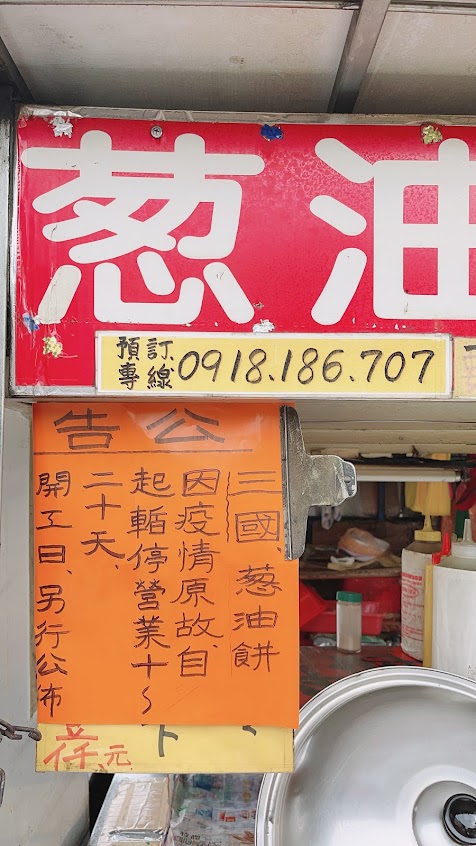 葱油
預訂
專線 0918.186.707
公告
三國、葱油餅
因疫情原故、自
起暫停營業十～
二十天、
開工日、另行公佈
元